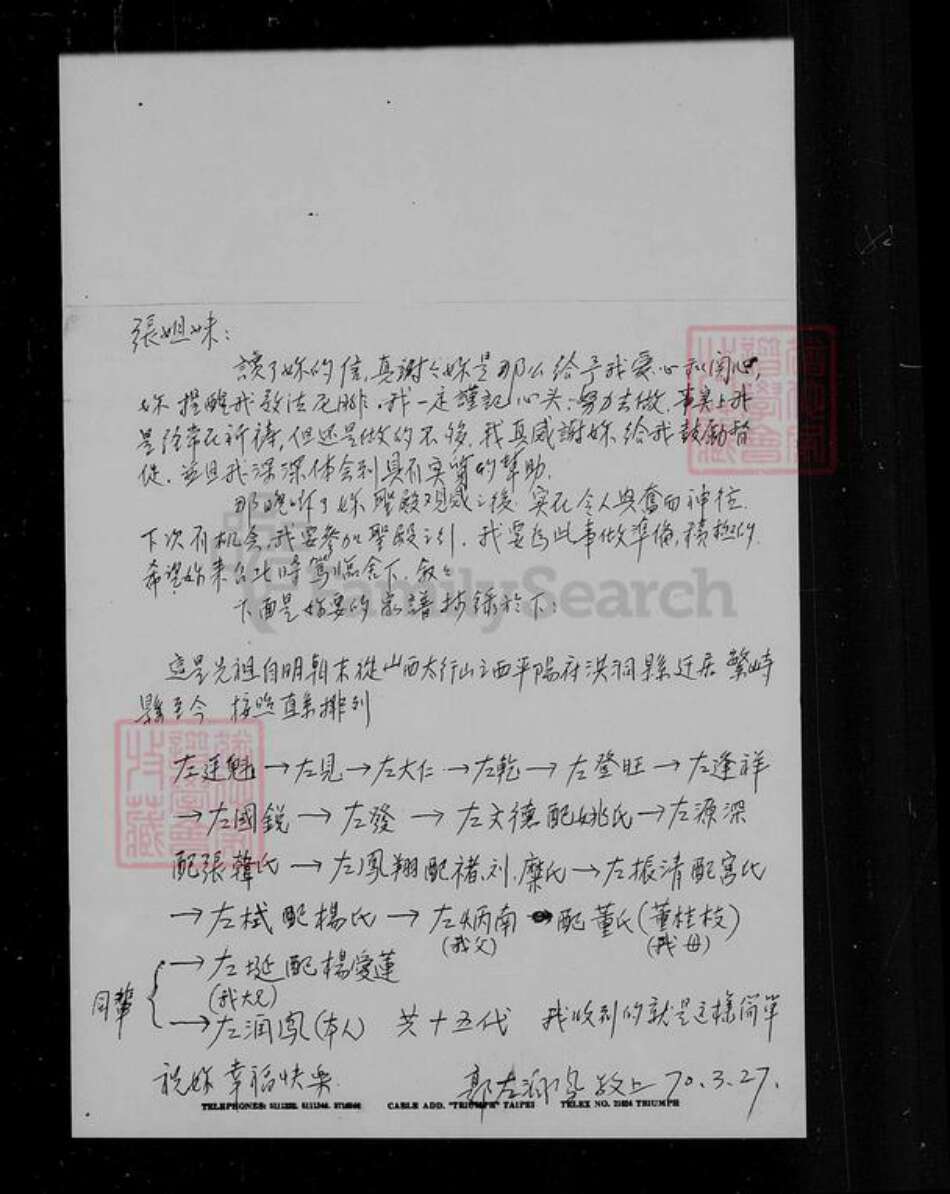 張姐妹：
讀了妳的信，真謝謝妳是那么給予我爱心和関心，
妳提醒我教法无助．我一定謹記心头，努力去做，事実上我
是经常在祈祷，但还是做的不够，我真感謝妳給我鼓勵督
促，並且我深深体会到具有实質的幫助．
那晚听了妳聖殿观感之後 实在令人興奮而神往．
下次有机会，我要参加聖殿之引．我要為此事做準備，積極的．
希望妳来台北時駕臨舍下．敘敘
下面是妳要的家譜抄錄於下：
這是先祖自明朝末從山西太行山之西平陽府洪洞縣迁居繁峙
縣至今 按照直系排列
左连魁→左見→左大仁→左乾→左登旺→左逢祥
→左國銳→左發→左文德配姚氏→左源深
配張韓氏→左鳳翔配褚.刘.糜氏→左振清配宮氏
→左栻配楊氏→左炳南 配董氏(董桂枝)
(我父) (我母)
→左埏配楊愛蓮
同輩 (我大兄)
→左润鳳(本人) 共十五代 我收到的就是这樣简單
祝妳幸福快樂． 郭左润鳳敬上 70.3.27.
TELEPHONES: CABLE ADD. "TRIUMPH" TAIPEI TELEX NO. TRIUMPH
FamilySearch